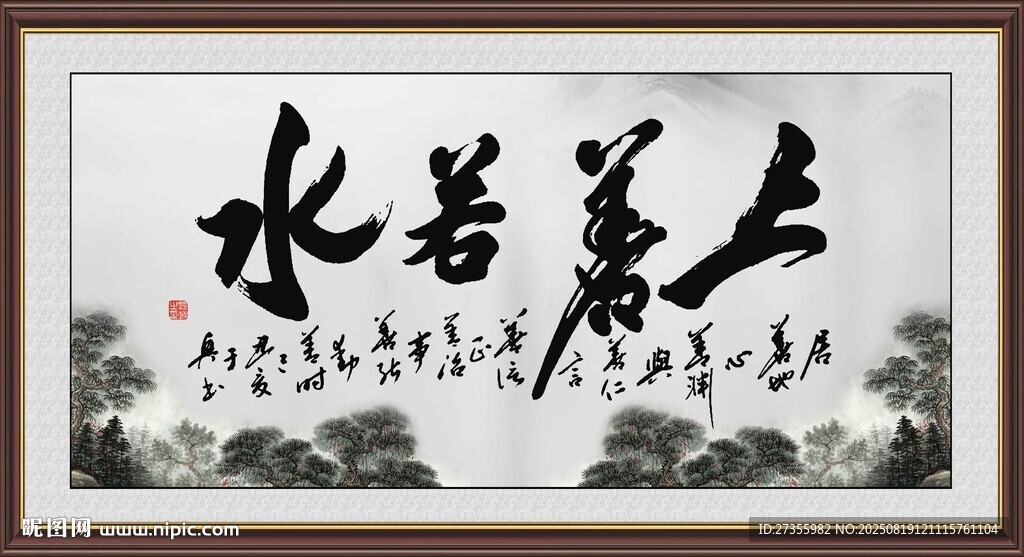 上善若水
居善地心善渊與善仁言善信正善治事善能動善时
昵图网 www.nipic.com
ID:27355982 NO.20250819121115761104